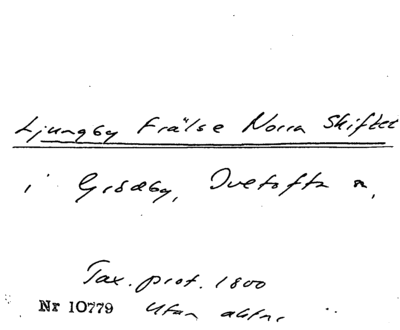 Ljungby Frälse Norra Skiftet
i Grödby, Ovetofta
Tax. prot. 1800
Nr 10779 utan